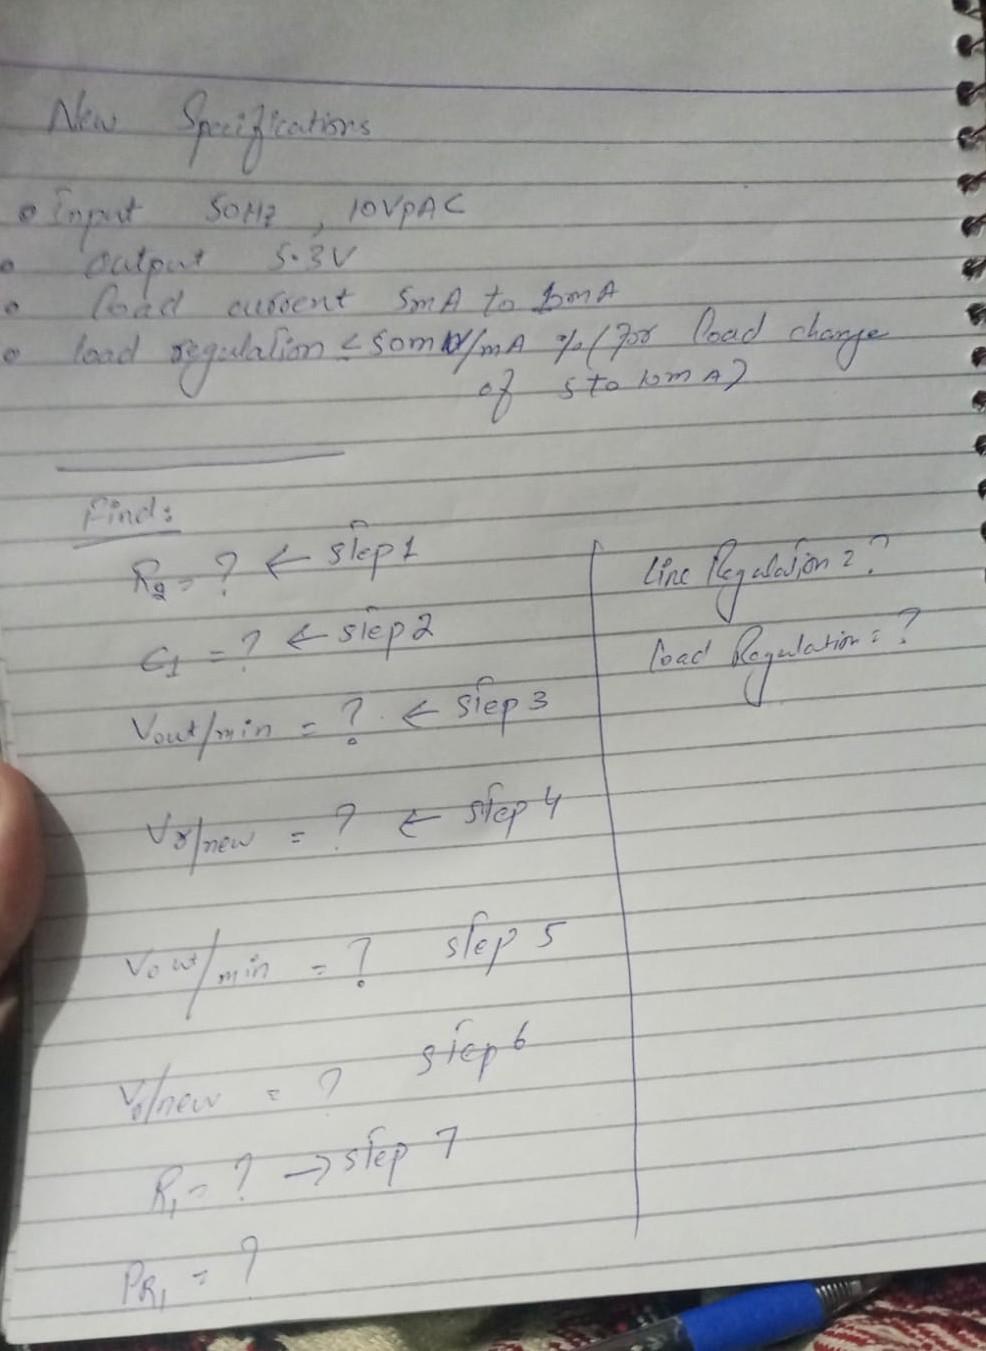 New Specifications
Input 50Hz, 10VpAC
output 5.3V
load current 5mA to 10mA
load regulation < 50mV/mA % (for load change
of 5 to 10mA)
Find:
R2 = ? ← step 1
C1 = ? ← step 2
Vout/min = ? ← step 3
Vr/new = ? ← step 4
Vout/min = ? step 5
Vr/new = ? step 6
R1 = ? → step 7
PR1 = ?
line Regulation = ?
load Regulation = ?